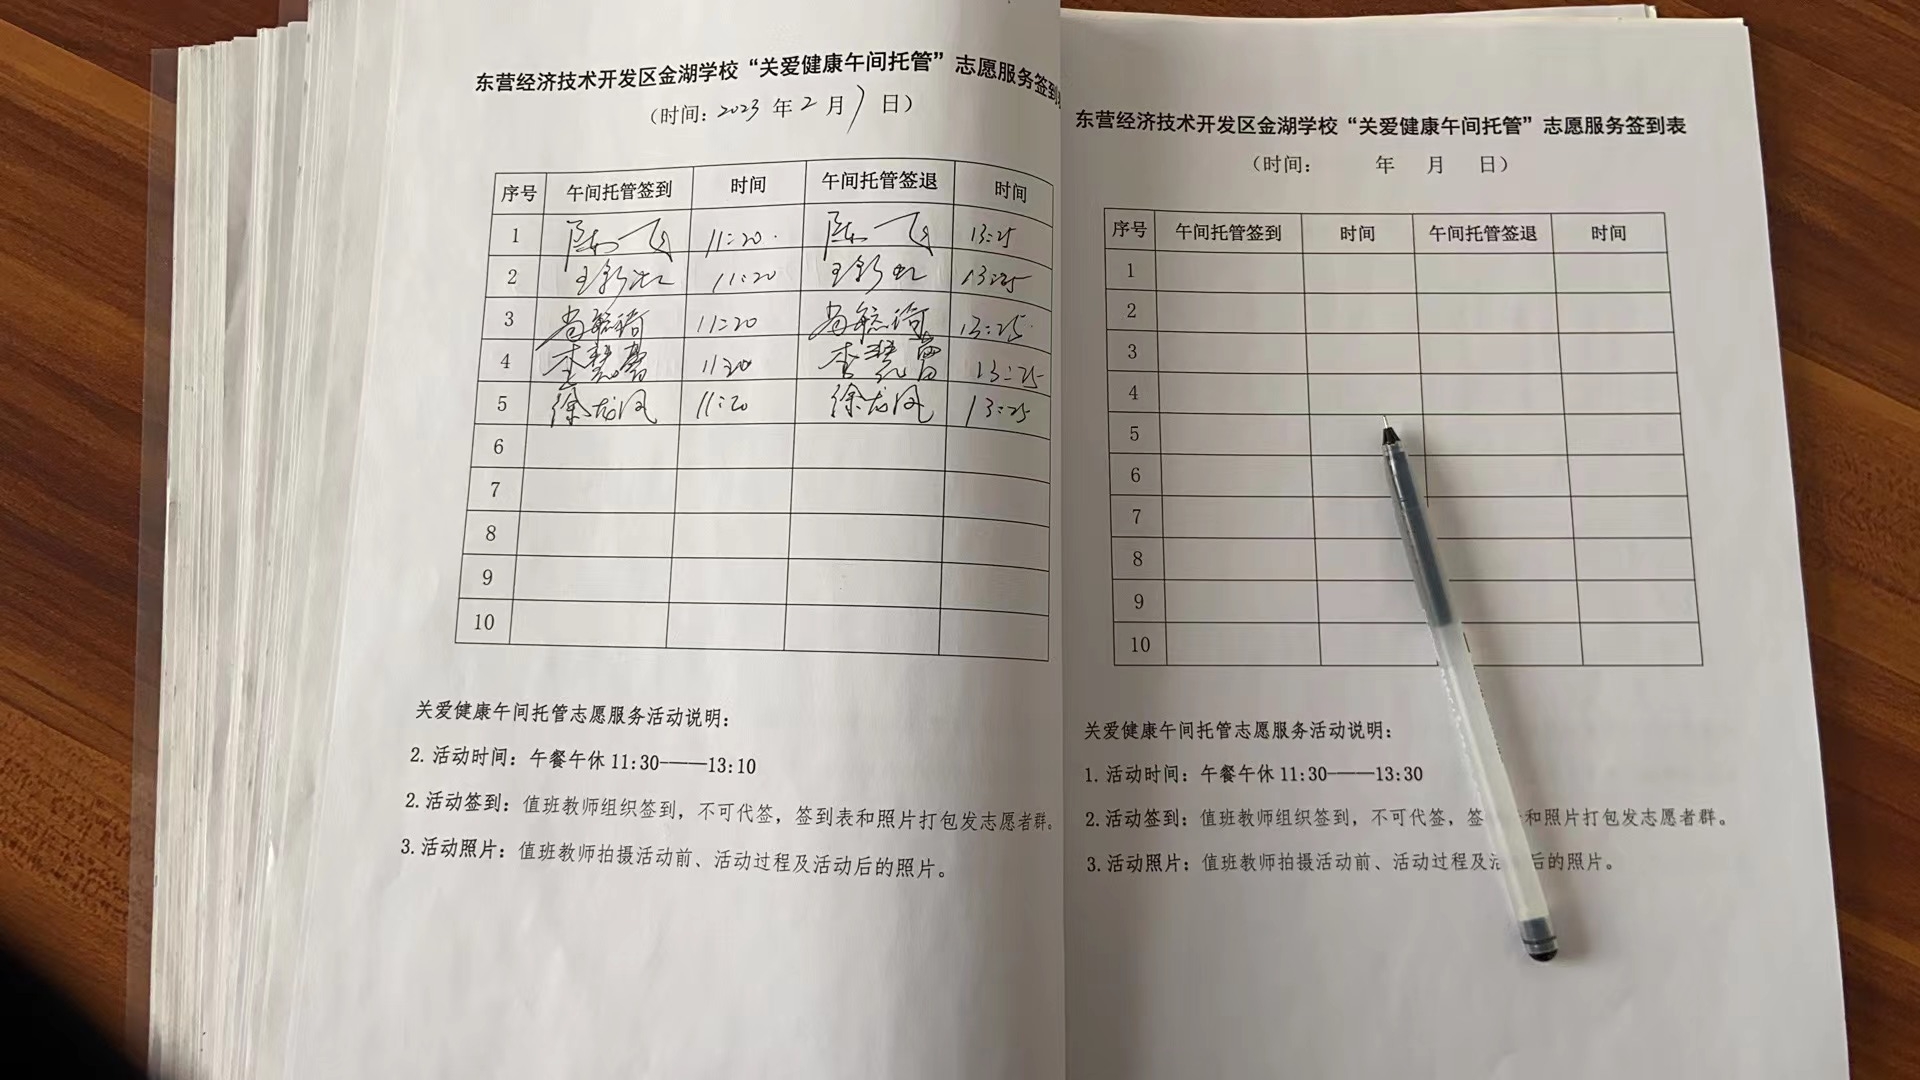 东营经济技术开发区金湖学校“关爱健康午间托管”志愿服务签到
（时间：2023年2月7日）
序号 午间托管签到 时间 午间托管签退 时间
1 陈一飞 11:20 陈一飞 13:25
2 11:20 13:25
3 11:20 13:25
4 11:20 13:25
5 徐龙凤 11:20 徐龙凤 13:25
6
7
8
9
10
关爱健康午间托管志愿服务活动说明：
2.活动时间：午餐午休11:30——13:10
2.活动签到：值班教师组织签到，不可代签，签到表和照片打包发志愿者群。
3.活动照片：值班教师拍摄活动前、活动过程及活动后的照片。
东营经济技术开发区金湖学校“关爱健康午间托管”志愿服务签到表
（时间： 年 月 日）
序号 午间托管签到 时间 午间托管签退 时间
1
2
3
4
5
6
7
8
9
10
关爱健康午间托管志愿服务活动说明：
1.活动时间：午餐午休11:30——13:30
2.活动签到：值班教师组织签到，不可代签，签 和照片打包发志愿者群。
3.活动照片：值班教师拍摄活动前、活动过程及活 后的照片。